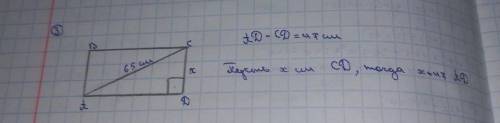 B C
AD - CD = 47 см
65 см
x
Пусть x см CD, тогда x+47 AD
A D